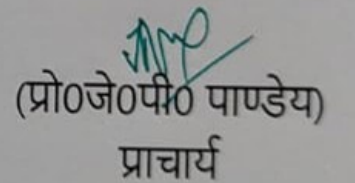 (प्रो0जे0पी0 पाण्डेय)
प्राचार्य